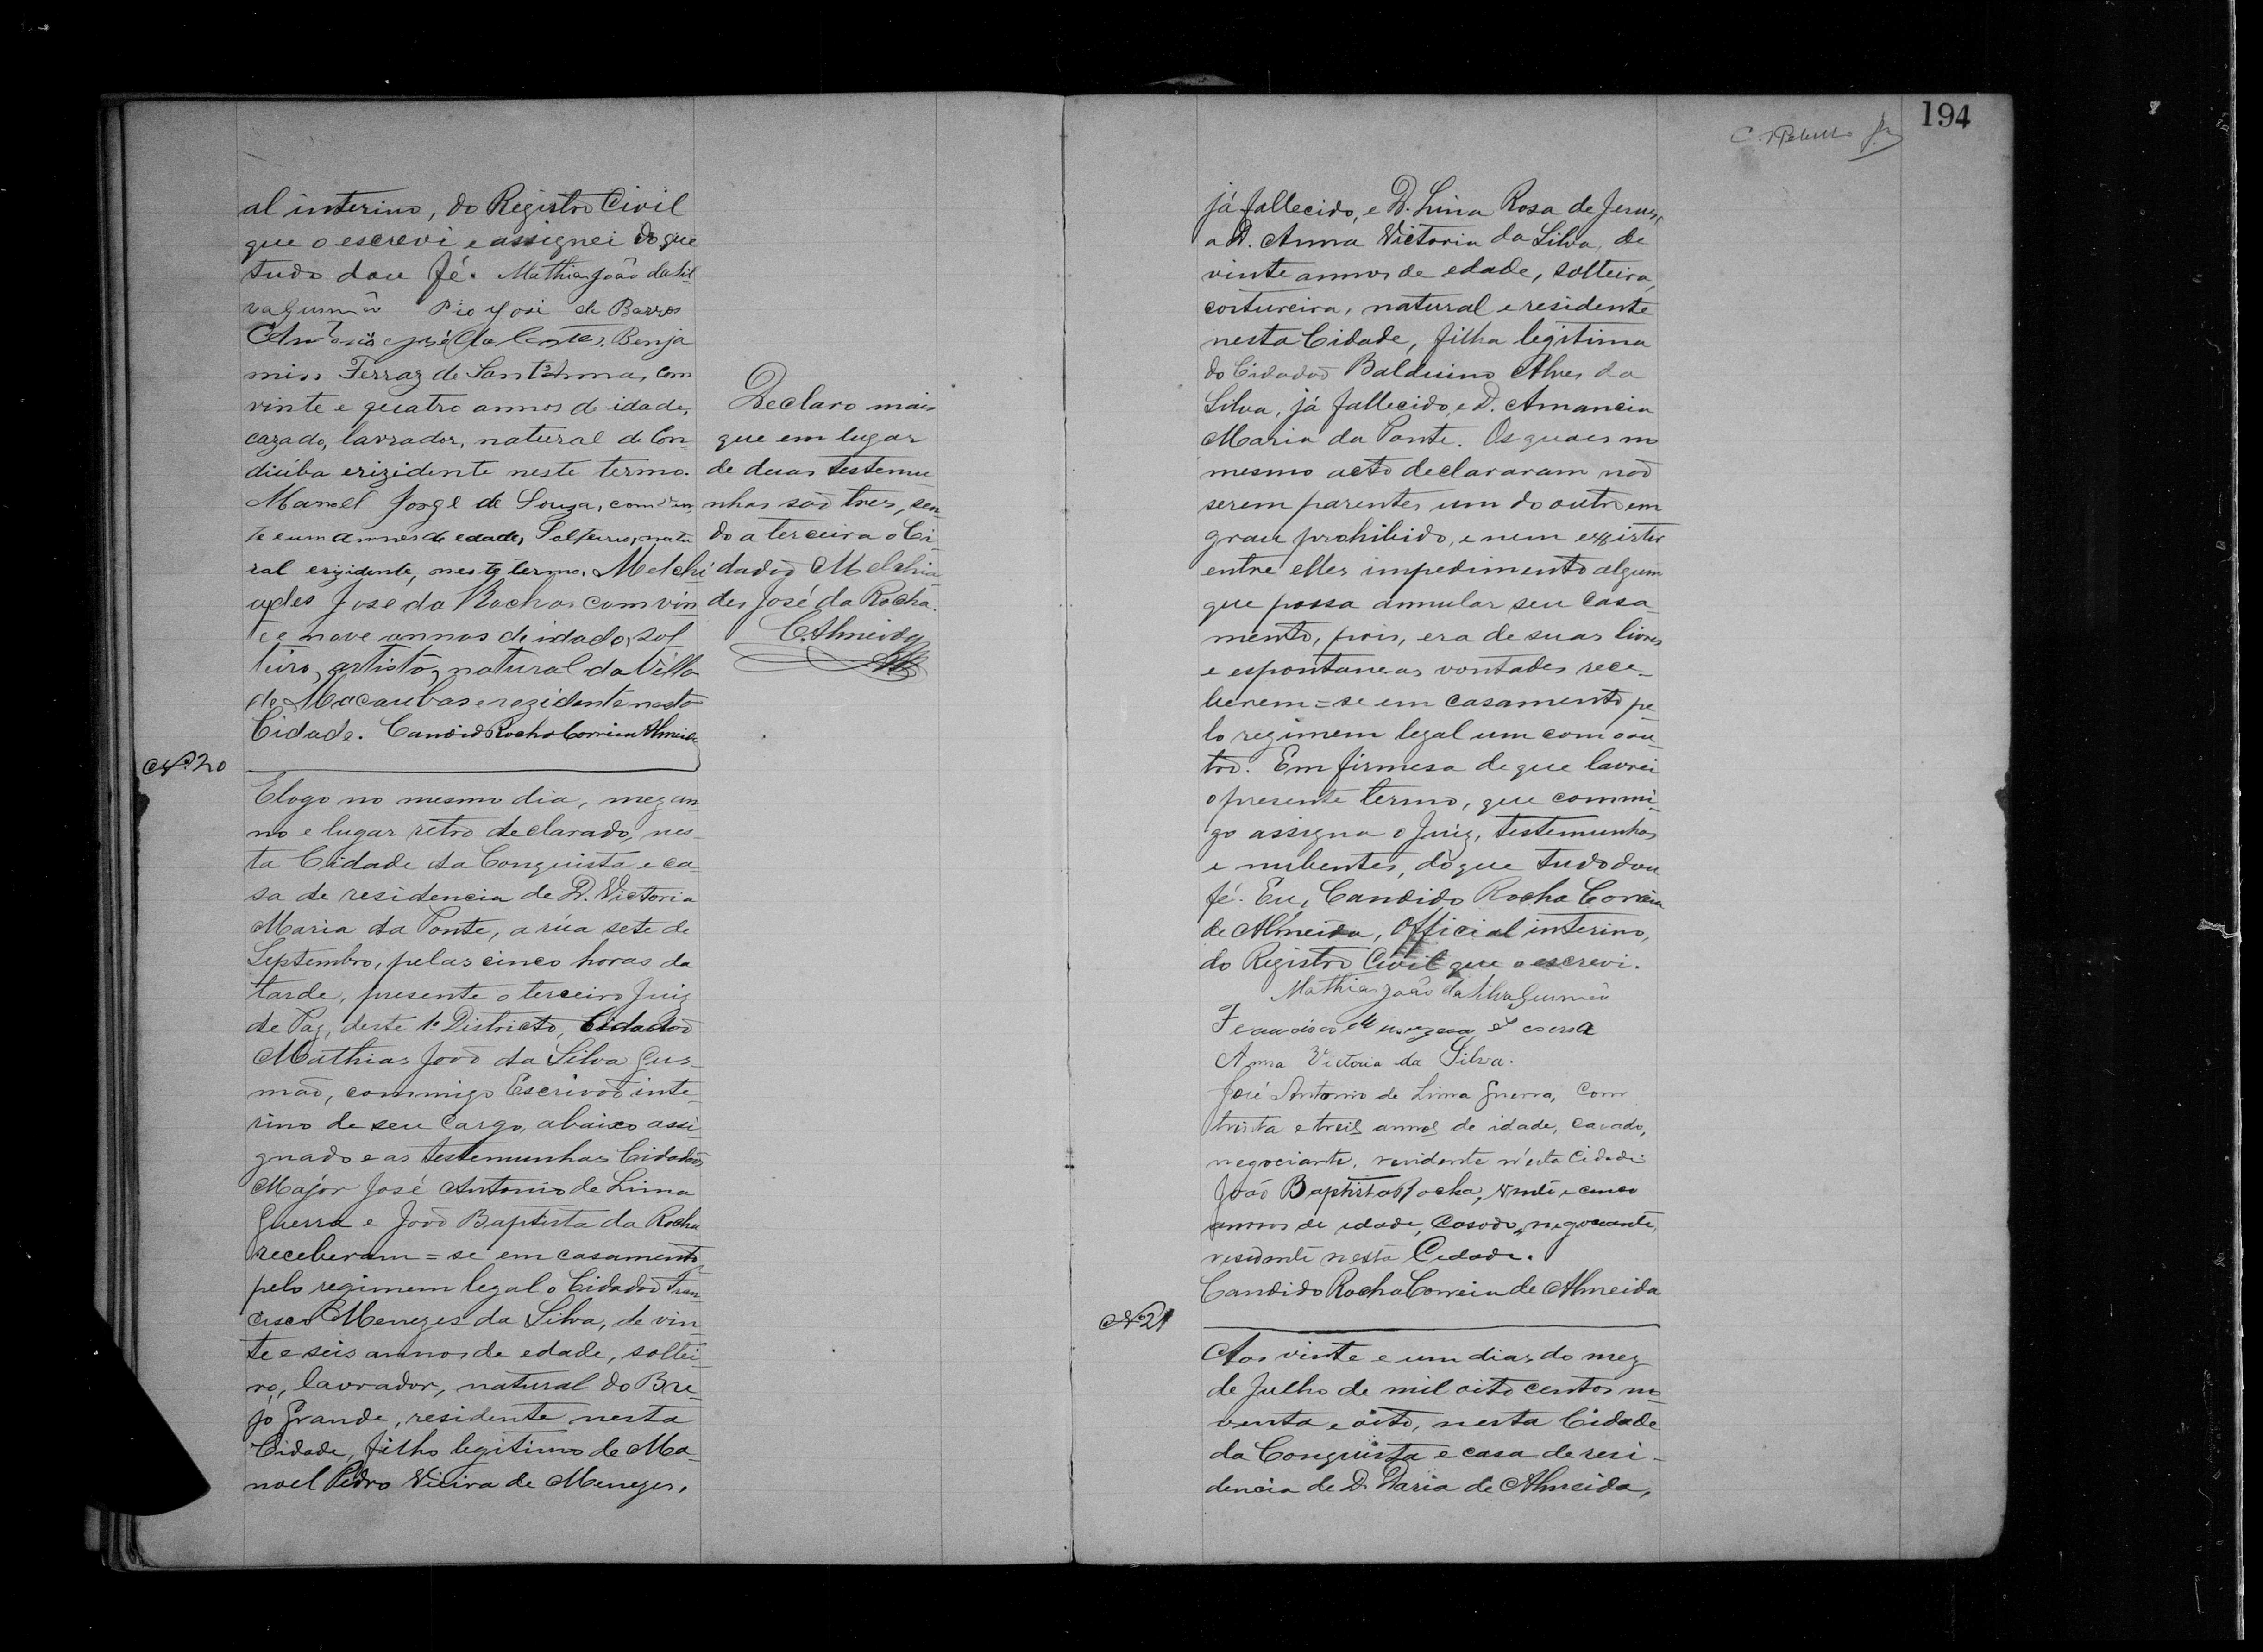 al interino, do Registro Civil
que o escrevi e assignei do que
tudo dou fé. Mathias João da Sil-
va Gusmão Pio José de Barros
Benja
min Ferraz de Sant'Anna, com
vinte e quatro annos de idade,
cazado, lavrador, natural de Con-
diúba erizidente neste termo.
Manoel Jorge de Souza, com vin
te e um annos de edade, Solteiro, natu
ral erizidente, neste termo. Melchi
ades José da Rocha com vin
te e nove annos de idade, sol
teiro, artista, natural da Villa
de Macaubas e rezidente nesta
Cidade. Candido Rocha Correia Almeida
Declaro mais
que em lugar
de duas testemu-
nhas são tres, sen-
do a terceira o Ci-
dadão Melchia-
des José da Rocha.
C. Almeida
Nº 20
E logo no mesmo dia, mez an-
no e lugar retro declarado, nes-
ta Cidade da Conquista e ca-
sa de residencia de D. Victoria
Maria da Ponte, a rúa sete de
Septembro, pelas cinco horas da
tarde, presente o terceiro Juiz
de Paz, deste 1º Districto, Cidadão
Mathias João da Silva Gus-
mão, commigo Escrivão inte-
rino de seu cargo, abaixo assi-
gnado e as testemunhas Cidadãos
Majór José Antonio de Lima
Guerra e João Baptista da Rocha
receberam=se em casamento
pelo regimem legal o Cidadão Fran-
cisco Menezes da Silva, de vin-
te e seis annos de edade, soltei-
ro, lavrador, natural do Bre-
jo Grande, residente nesta
Cidade, filho legitimo de Ma-
noel Pedro Vieira de Menezes,
194
já fallecido, e D. Lina Rosa de Jesus,
a D. Anna Victoria da Silva, de
vinte annos de edade, solteira,
costureira, natural e residente
nesta Cidade, filha legitima
do Cidadão Balduino Alves da
Silva, já fallecido, e D. Amancia
Maria da Ponte. Os quaes no
mesmo acto declararam não
serem parentes um do outro em
grau prohibido, e nem existir
entre elles impedimento algum
que possa annular seu casa-
mento, pois, era de suas livres
e espontaneas vontades rece-
berem=se em casamento pe-
lo regimem legal um com o ou-
tro. Em firmesa de que lavrei
o presente termo, que commi-
go assigna o Juiz, testemunhas
e nubentes, do que tudo dou
fé. Eu, Candido Rocha Correia
de Almeida, Official interino,
do Registro Civil que o escrevi.
Mathias João da Silva Gusmão
Francisco
Anna Victoria da Silva.
José Antonio de Lima Guerra, com
trinta e treis annos de idade, casado,
negociante, residente n'esta Cidade.
João Baptista Rocha, vinte e cinco
annos de idade, Casado, negociante,
residente nesta Cidade.
Candido Rocha Correia de Almeida
Nº 21
Aos vinte e um dias do mez
de Julho de mil oito centos no-
venta e oito, nesta Cidade
da Conquista e casa de resi-
dencia de D. Maria de Almeida,